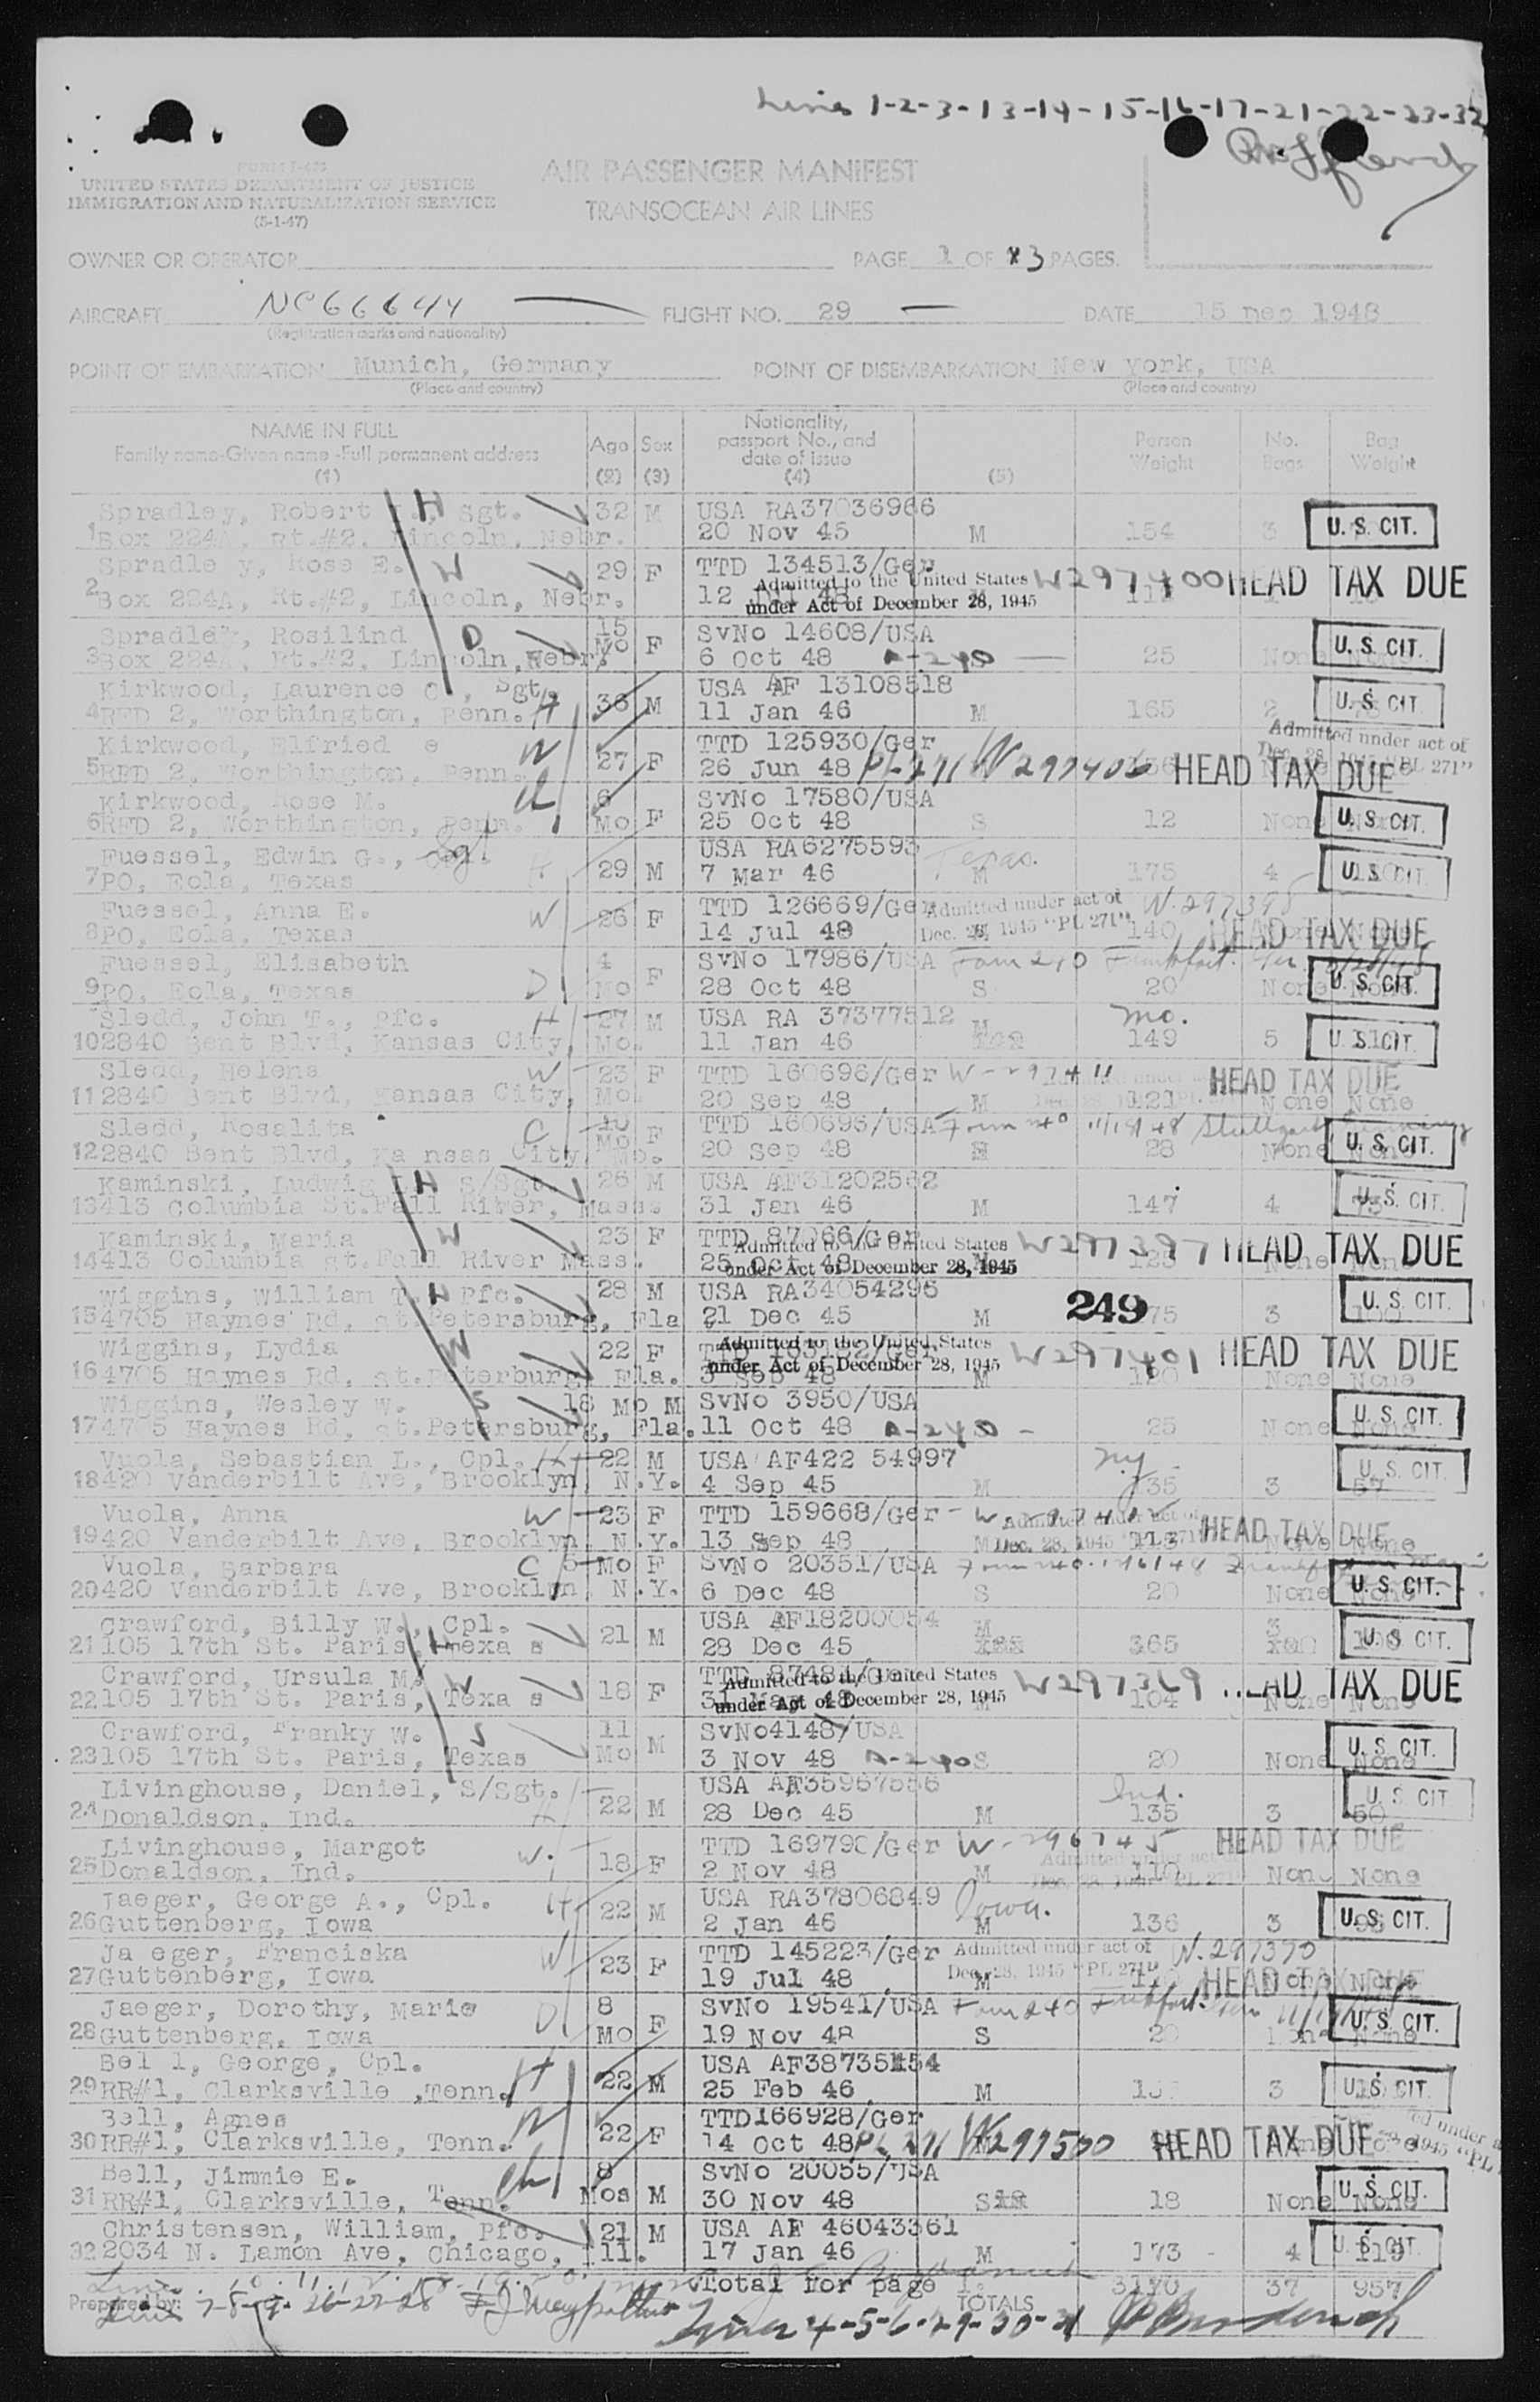 Lines 1-2-3-13-14-15-16-17-21-22-23-32
FORM I-433
UNITED STATES DEPARTMENT OF JUSTICE
IMMIGRATION AND NATURALIZATION SERVICE
(5-1-47)
AIR PASSENGER MANIFEST
TRANSOCEAN AIR LINES
OWNER OR OPERATOR PAGE 1 OF 3 PAGES.
AIRCRAFT NC66644 FLIGHT NO. 29 DATE 15 Dec 1948
(Registration marks and nationality)
POINT OF EMBARKATION Munich, Germany POINT OF DISEMBARKATION New York, USA
(Place and country) (Place and country)
NAME IN FULL
Family name-Given name-Full permanent address
(1)
Age (2) Sex (3)
Nationality, passport No., and date of issue (4)
(5) Person Weight No. Bags Bag Weight
Spradley, Robert Sgt. H 32 M USA RA37036966
1 Box 224A, Rt.#2, Lincoln, Nebr. 20 Nov 45 M 154 3 U. S. CIT.
Spradle y, Rose E. W 29 F TTD 134513/Ger W297400 HEAD TAX DUE
2 Box 224A, Rt.#2, Lincoln, Nebr. 12 48 Admitted to the United States under Act of December 28, 1945
Spradley, Rosilind D 15 Mo F SvNo 14608/USA
3 Box 224A, Rt.#2, Lincoln, Nebr. 6 Oct 48 A-240 25 None None U. S. CIT.
Kirkwood, Laurence C., Sgt. H 36 M USA AF 13108518
4 RFD 2, Worthington, Penn. 11 Jan 46 M 165 2 U. S. CIT.
Kirkwood, Elfried e W 27 F TTD 125930/Ger Admitted under act of Dec. 28, 1945 "PL 271"
5 RFD 2, Worthington, Penn. 26 Jun 48 PL-271 W297406 HEAD TAX DUE
Kirkwood, Rose M. Ch 6 Mo F SvNo 17580/USA
6 RFD 2, Worthington, Penn. 25 Oct 48 S 12 None None U. S. CIT.
Fuessel, Edwin G., Sgt H 29 M USA RA6275593 Texas.
7 PO, Eola, Texas 7 Mar 46 M 175 4 U. S. CIT.
Fuessel, Anna E. W 26 F TTD 126669/Ger Admitted under act of Dec. 28, 1945 "PL 271" W-297398
8 PO, Eola, Texas 14 Jul 48 140 HEAD TAX DUE
Fuessel, Elisabeth D 4 Mo F SvNo 17986/USA Form 240 Frankfurt. Ger
9 PO, Eola, Texas 28 Oct 48 S 20 None None U. S. CIT.
Sledd, John T., Pfc. H 27 M USA RA 37377512 M Mo.
10 2840 Bent Blvd, Kansas City, Mo. 11 Jan 46 149 5 U. S. CIT.
Sledd, Helena W 23 F TTD 160696/Ger HEAD TAX DUE
11 2840 Bent Blvd, Kansas City, Mo. 20 Sep 48 M 121 None None
Sledd, Rosalita C 10 Mo F TTD 160695/USA Form 240 Stuttgart Germany
12 2840 Bent Blvd, Ka nsas City, Mo. 20 Sep 48 28 None None U. S. CIT.
Kaminski, Ludwig S/Sgt. H 26 M USA AF31202562
13 413 Columbia St. Fall River, Mass. 31 Jan 46 M 147 4 U. S. CIT.
Kaminski, Maria W 23 F TTD 87066/Ger W297397 HEAD TAX DUE
14 413 Columbia St. Fall River Mass. 25 Oct 48 Admitted to the United States under Act of December 28, 1945
Wiggins, William T. H Pfc. 28 M USA RA34054296
15 4705 Haynes Rd, St.Petersburg, Fla 21 Dec 45 M 249 175 3 U. S. CIT.
Wiggins, Lydia W 22 F Admitted to the United States W297401 HEAD TAX DUE
16 4705 Haynes Rd, St.Peterburg Fla. 3 Sep 48 under Act of December 28, 1945 M None None
Wiggins, Wesley W. S 18 Mo M SvNo 3950/USA
17 4705 Haynes Rd, St.Petersburg, Fla. 11 Oct 48 A-240 25 None None U. S. CIT.
Vuola, Sebastian L., Cpl. H 22 M USA AF422 54997 NY
18 420 Vanderbilt Ave, Brooklyn, N.Y. 4 Sep 45 M 135 3 57 U. S. CIT.
Vuola, Anna W 23 F TTD 159668/Ger
19 420 Vanderbilt Ave, Brooklyn, N.Y. 13 Sep 48 M HEAD TAX DUE None None
Vuola, Barbara C Mo F SvNo 20351/USA Form 240
20 420 Vanderbilt Ave, Brooklyn, N.Y. 6 Dec 48 S 20 None None U. S. CIT.
Crawford, Billy W., Cpl. H 21 M USA AF18200054 M
21 105 17th St. Paris, Texa s 28 Dec 45 165 3 U. S. CIT.
Crawford, Ursula M. W 18 F Admitted to the United States W297369 HEAD TAX DUE
22 105 17th St. Paris, Texa s under Act of December 28, 1945 104 None None
Crawford, Franky W. S 11 Mo M SvNo4148/USA
23 105 17th St. Paris, Texas 3 Nov 48 A-240 S 20 None None U. S. CIT.
Livinghouse, Daniel, S/Sgt. H 22 M USA AF35967556 Ind.
24 Donaldson, Ind. 28 Dec 45 M 135 3 50 U. S. CIT
Livinghouse, Margot W. 18 F TTD 169790/Ger W-296745 HEAD TAX DUE
25 Donaldson, Ind. 2 Nov 48 M 110 None None
Jaeger, George A., Cpl. H 22 M USA RA37806849 Iowa.
26 Guttenberg, Iowa 2 Jan 46 M 136 3 U. S. CIT.
Ja eger, Franciska W 23 F TTD 145223/Ger Admitted under act of Dec. 28, 1945 "PL 271" W-297370
27 Guttenberg, Iowa 19 Jul 48 M HEAD TAX DUE
Jaeger, Dorothy, Marie D 8 Mo F SvNo 19541/USA Form 240
28 Guttenberg, Iowa 19 Nov 48 S 20 None U. S. CIT.
Bel l, George, Cpl. H 22 M USA AF38735154
29 RR#1, Clarksville ,Tenn. 25 Feb 46 M 3 U. S. CIT.
Bell, Agnes W 22 F TTD166928/Ger
30 RR#1, Clarksville, Tenn. 14 Oct 48 PL 271 W297500 HEAD TAX DUE
Bell, Jimmie E. Ch 8 Mos M SvNo 20055/USA
31 RR#1, Clarksville, Tenn. 30 Nov 48 S 18 None None U. S. CIT.
Christensen, William, Pfc. 21 M USA AF 46043361
32 2034 N. Lamon Ave, Chicago, Ill. 17 Jan 46 M 173 4 119 U. S. CIT.
Total for page 1. 3170 37 957
Prepared by: TOTALS
Lines 7-8-9-26-27-28
Lines 4-5-6-29-30-31